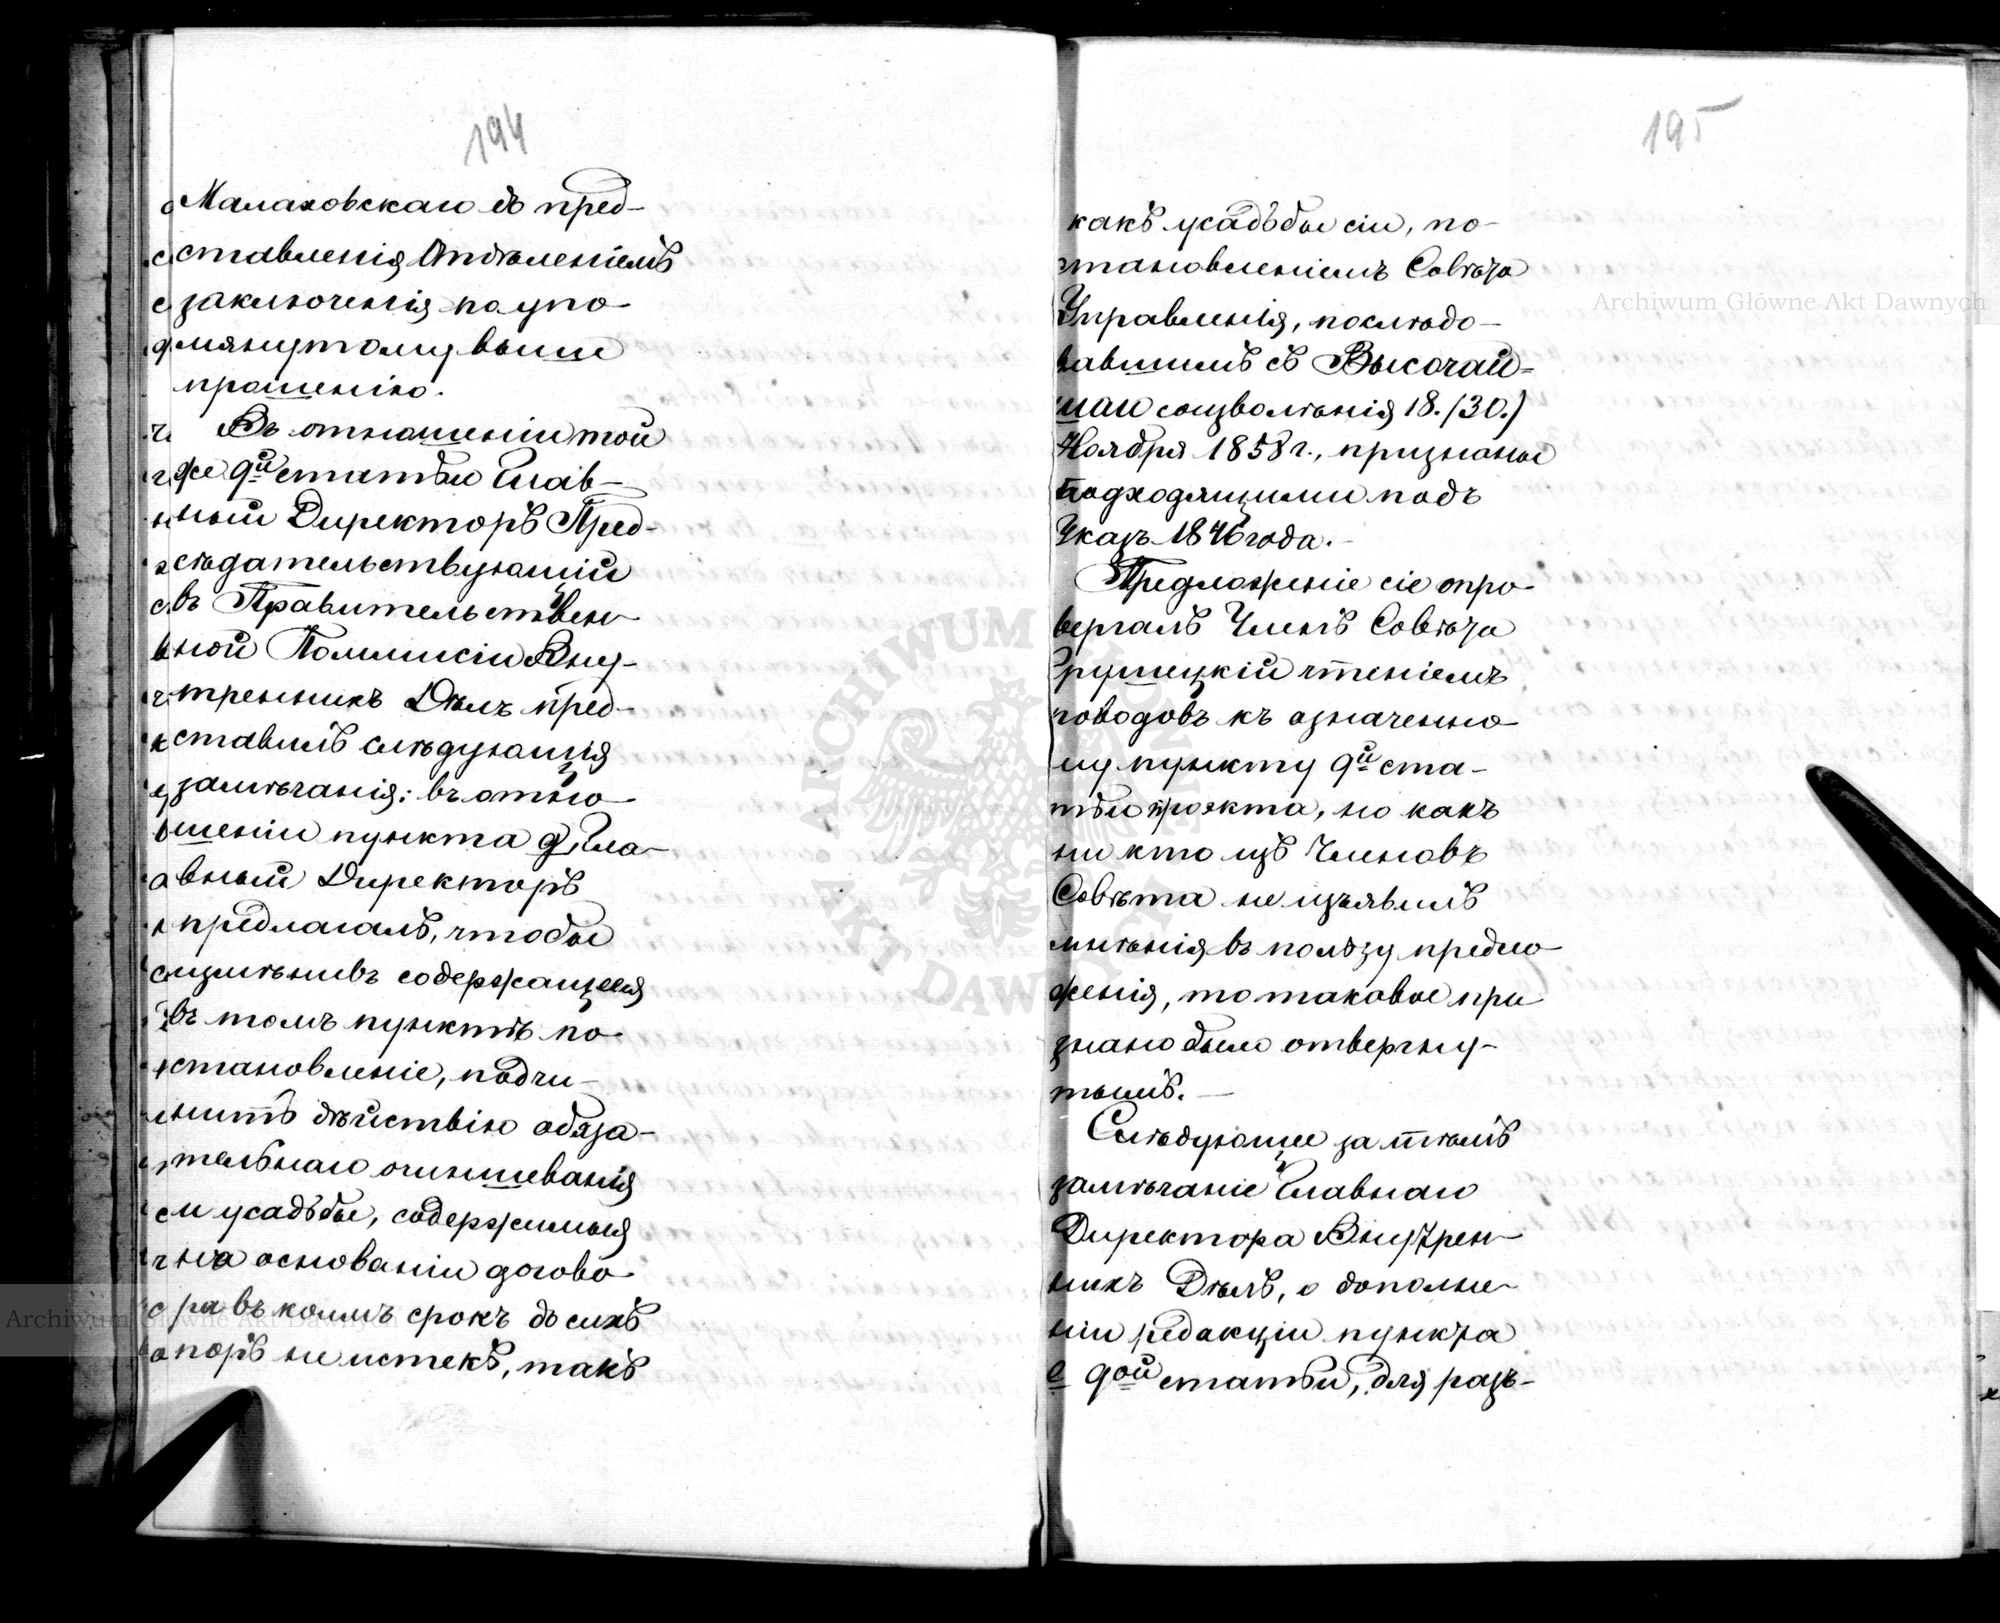 194
Малаховскаго до пред-
ставленія Отдѣленіемъ
заключенія по упо-
мянутому выше
прошенію.
Въ отношеніи той
же 9й статьи Глав-
ный Директоръ Пред-
сѣдательствующій
въ Правительствен-
ной Коммисіи Вну-
треннихъ Дѣлъ пред-
ставилъ слѣдующія
замѣчанія: въ отно-
шеніи пункта d, Гла-
вный Директоръ
предлагалъ, чтобы
измѣнивъ содержащееся
въ томъ пунктѣ по-
становленіе, подчи-
нить дѣйствію обяза-
тельнаго очиншеванія
и усадьбы, содержимыя
на основаніи догово-
ра въ коимъ срокъ до сихъ
поръ не истекъ, такъ
195
какъ усадьбы сіи, по-
становленіемъ Совѣта
Управленія, послѣдо-
вавшимъ съ Высочай-
шаго соизволѣнія 18./30./
Ноября 1858 г., признаны
подходящими подъ
Указъ 1846 года.
Предложеніе сіе опро-
вергалъ Членъ Совѣта
Грушецкій чтеніемъ
поводовъ къ означенно-
му пункту 9й ста-
тьи проэкта, но какъ
ни кто изъ Членовъ
Совѣта не изъявилъ
мнѣнія въ пользу предло-
женія, то таковое при-
знано было отвергну-
тымъ.
Слѣдующее за тѣмъ
замѣчаніе Главнаго
Директора Внутрен-
нихъ Дѣлъ, о дополне-
ніи редакціи пункта
e 9ой статьи, для разъ-
Archiwum Główne Akt Dawnych
Archiwum Główne Akt Dawnych
ARCHIWUM GŁÓWNE AKT DAWNYCH